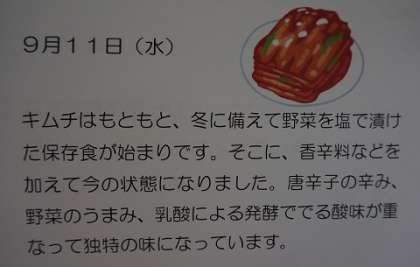 ９月１１日（水）
キムチはもともと、冬に備えて野菜を塩で漬け
た保存食が始まりです。そこに、香辛料などを
加えて今の状態になりました。唐辛子の辛み、
野菜のうまみ、乳酸による発酵ででる酸味が重
なって独特の味になっています。